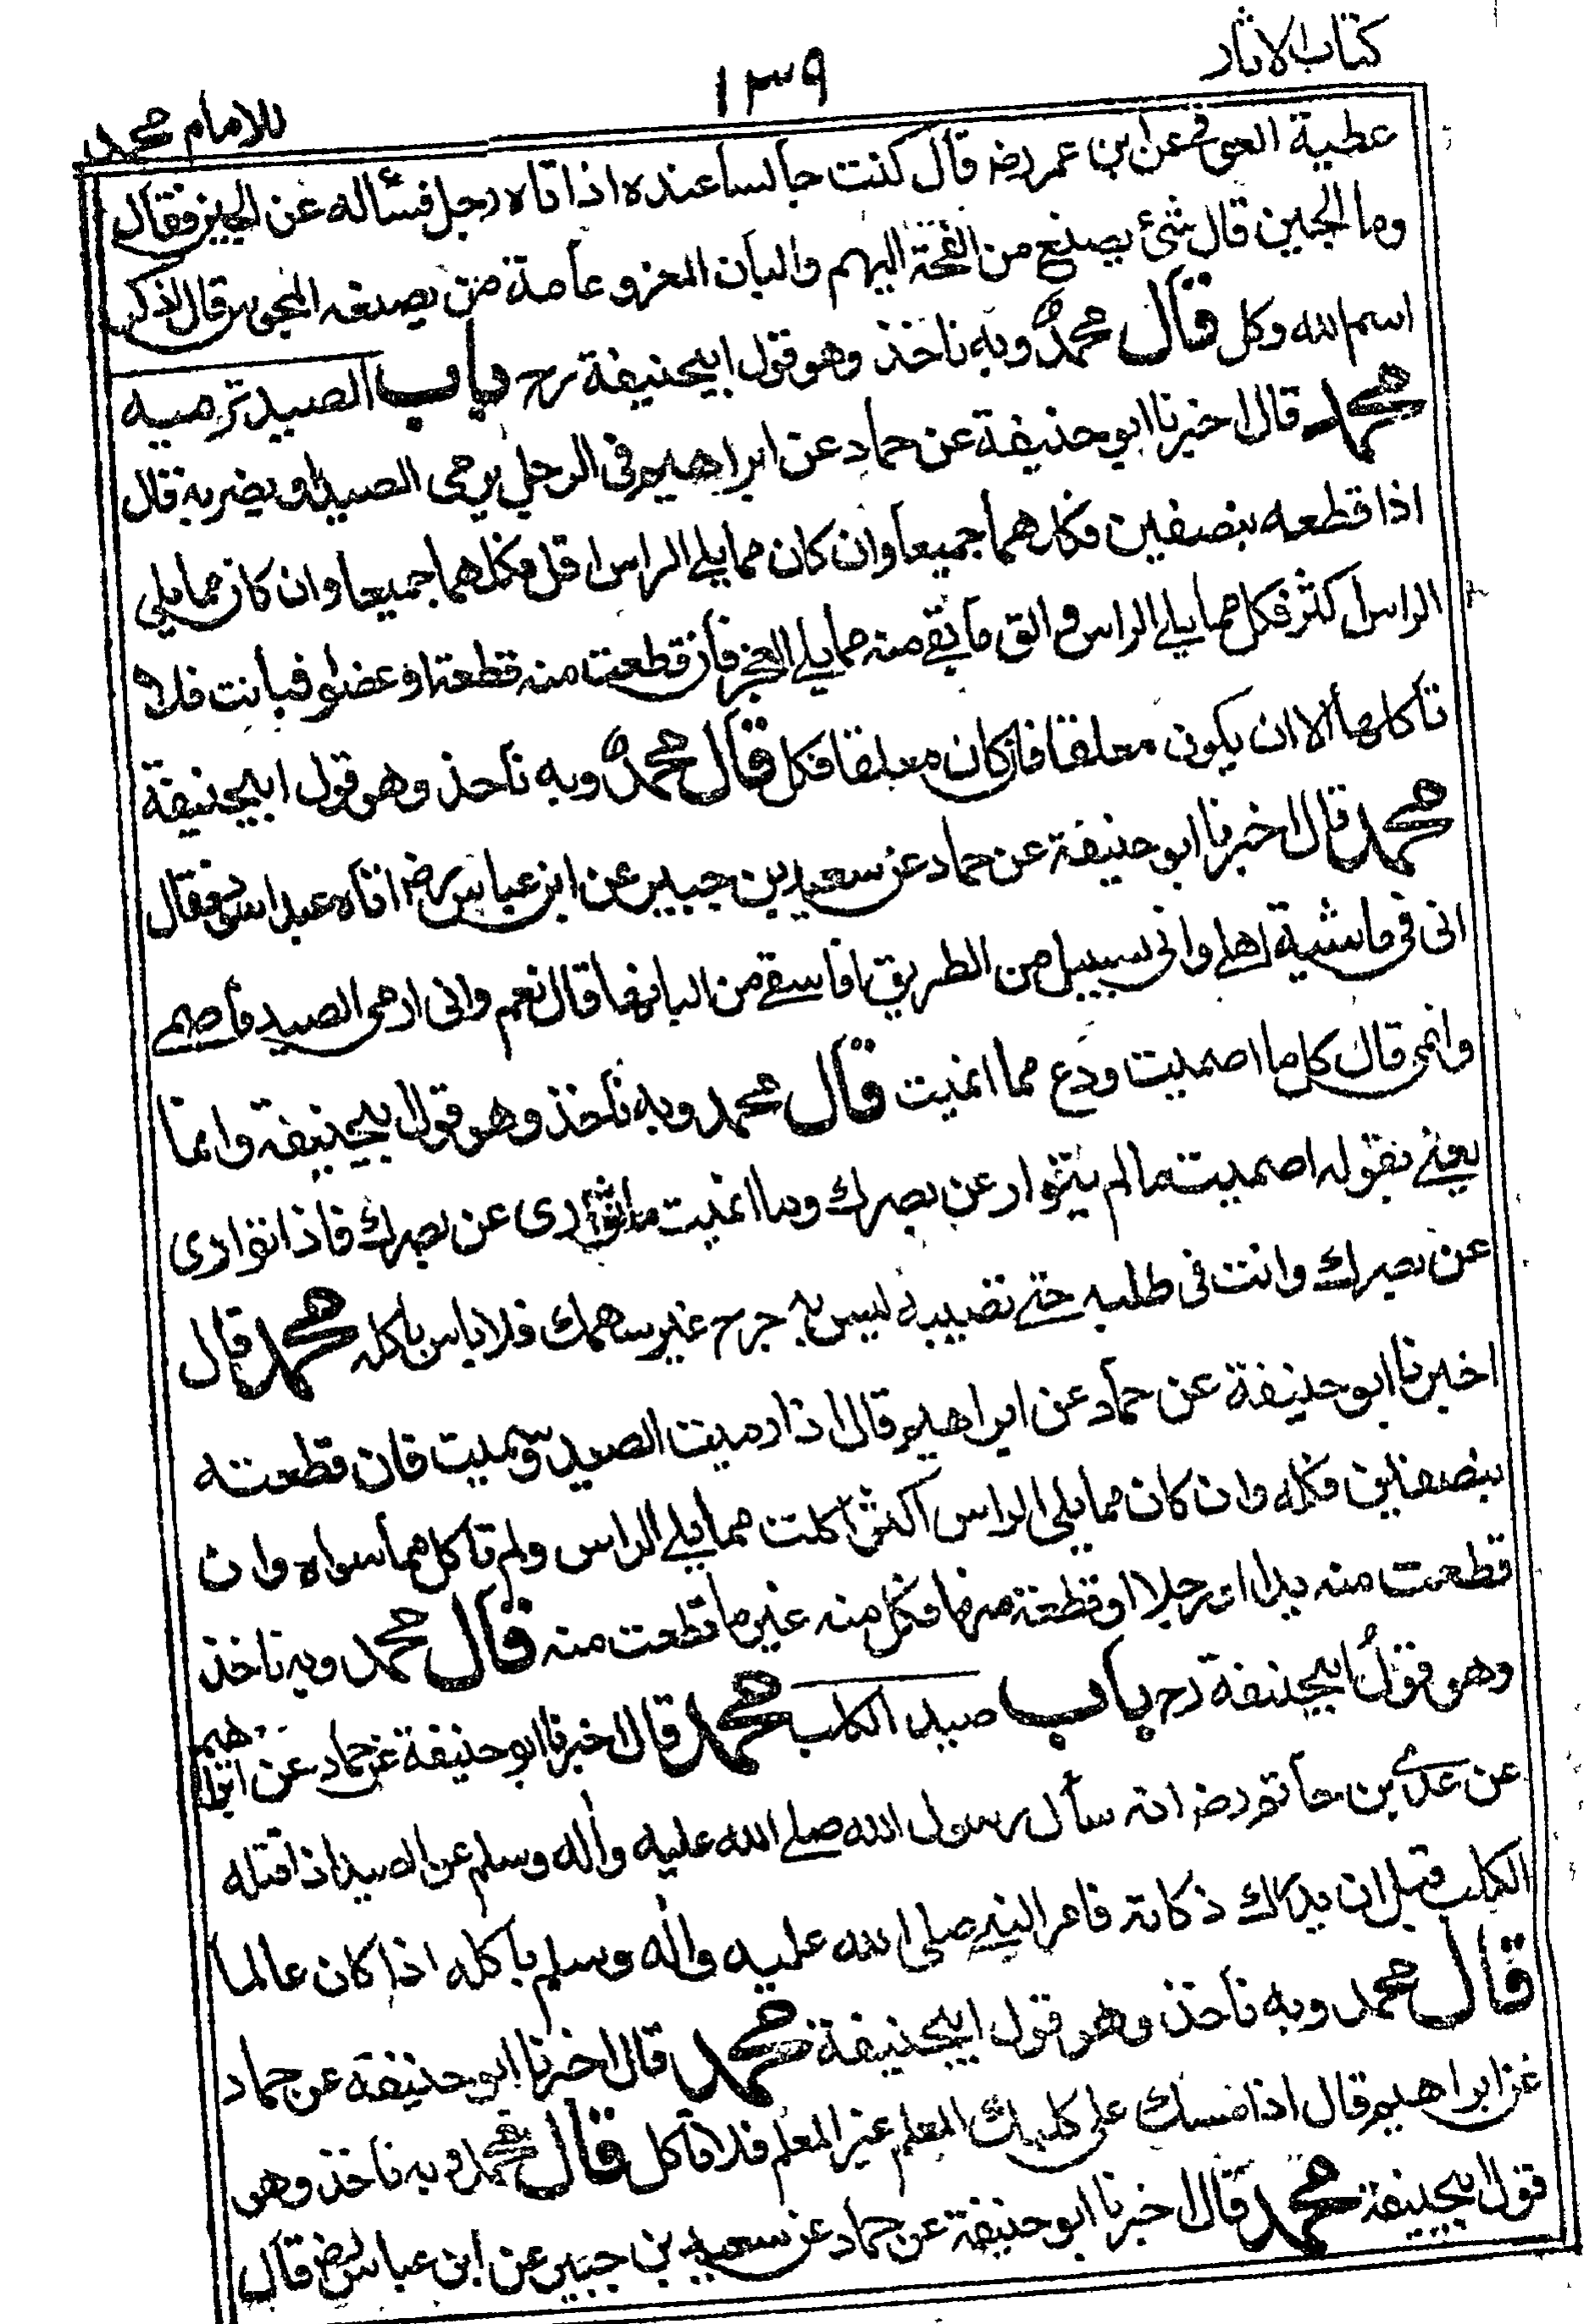 كتاب الاثار
١٣٩
للامام محمد
عطية العوفى عن ابن عمر رضـ قال كنت جالسا عنده اذا تاه رجل فسأله عن الجبن فقال
وما الجبن قال شئ يصنع من انفحة البهم والبان المعز وعامة من يصنعه المجوس قال اذكر
اسم الله وكل قال محمد وبه ناخذ وهو قول ابيحنيفة رح باب الصيد ترميه
محمد قال اخبرنا ابو حنيفة عن حماد عن ابراهيم فى الرجل يرمى الصيد او يضربه قال
اذا قطعه بنصفين فكلهما جميعا وان كان مما يلے الراس اقل فكلهما جميعا وان كان مما يلى
الراس اكثر فكل مما يلے الراس والق ما بقے منه مما يلے العجز فان قطعت منه قطعة او عضوا فبانت فلا
تأكلها الا ان يكون معلقا فان كان معلقا فكل قال محمد وبه ناخذ وهو قول ابيحنيفة
محمد قال اخبرنا ابو حنيفة عن حماد عن سعيد بن جبير عن ابن عباس رضـ اتاه عبد اسود فقال
انى فى ماشية اهلے وانى بسبيل من الطريق افاسقے من البانها قال نعم وانى ارمى الصيد فاصمے
وانمى قال كل ما اصميت ودع مما انميت قال محمد وبه ناخذ وهو قول ابيحنيفة وانما
يعنے بقوله اصميت ما لم يتوار عن بصرك وما انميت ما توارى عن بصرك فاذا توارى
عن بصرك وانت فى طلبه حتے تصيبه ليس به جرح غير سهمك فلا باس باكله محمد قال
اخبرنا ابو حنيفة عن حماد عن ابراهيم قال اذا رميت الصيد وسميت فان قطعته
بنصفين فكله وان كان مما يلى الراس اكثر اكلت مما يلے الراس ولم تاكل مما سواه وان
قطعت منه يدا او رجلا او قطعة منها فكل منه غير ما قطعت منه قال محمد وبه ناخذ
وهو قول ابيحنيفة رح باب صيد الكلب محمد قال اخبرنا ابو حنيفة عن حماد عن ابراهيم
عن عدى بن حاتم رضـ انه سأل رسول الله صلے الله عليه واله وسلم عن الصيد اذا قتله
الكلب قبل ان يدرك ذكاته فامر النبے صلى الله عليه واله وسلم باكله اذا كان عالما
قال محمد وبه ناخذ وهو قول ابيحنيفة محمد قال اخبرنا ابو حنيفة عن حماد
عن ابراهيم قال اذا امسك على كلبك المعلم غير المعلم فلا تاكل قال محمد وبه ناخذ وهو
قول ابيحنيفة محمد قال اخبرنا ابو حنيفة عن حماد عن سعيد بن جبير عن ابن عباس رضـ قال